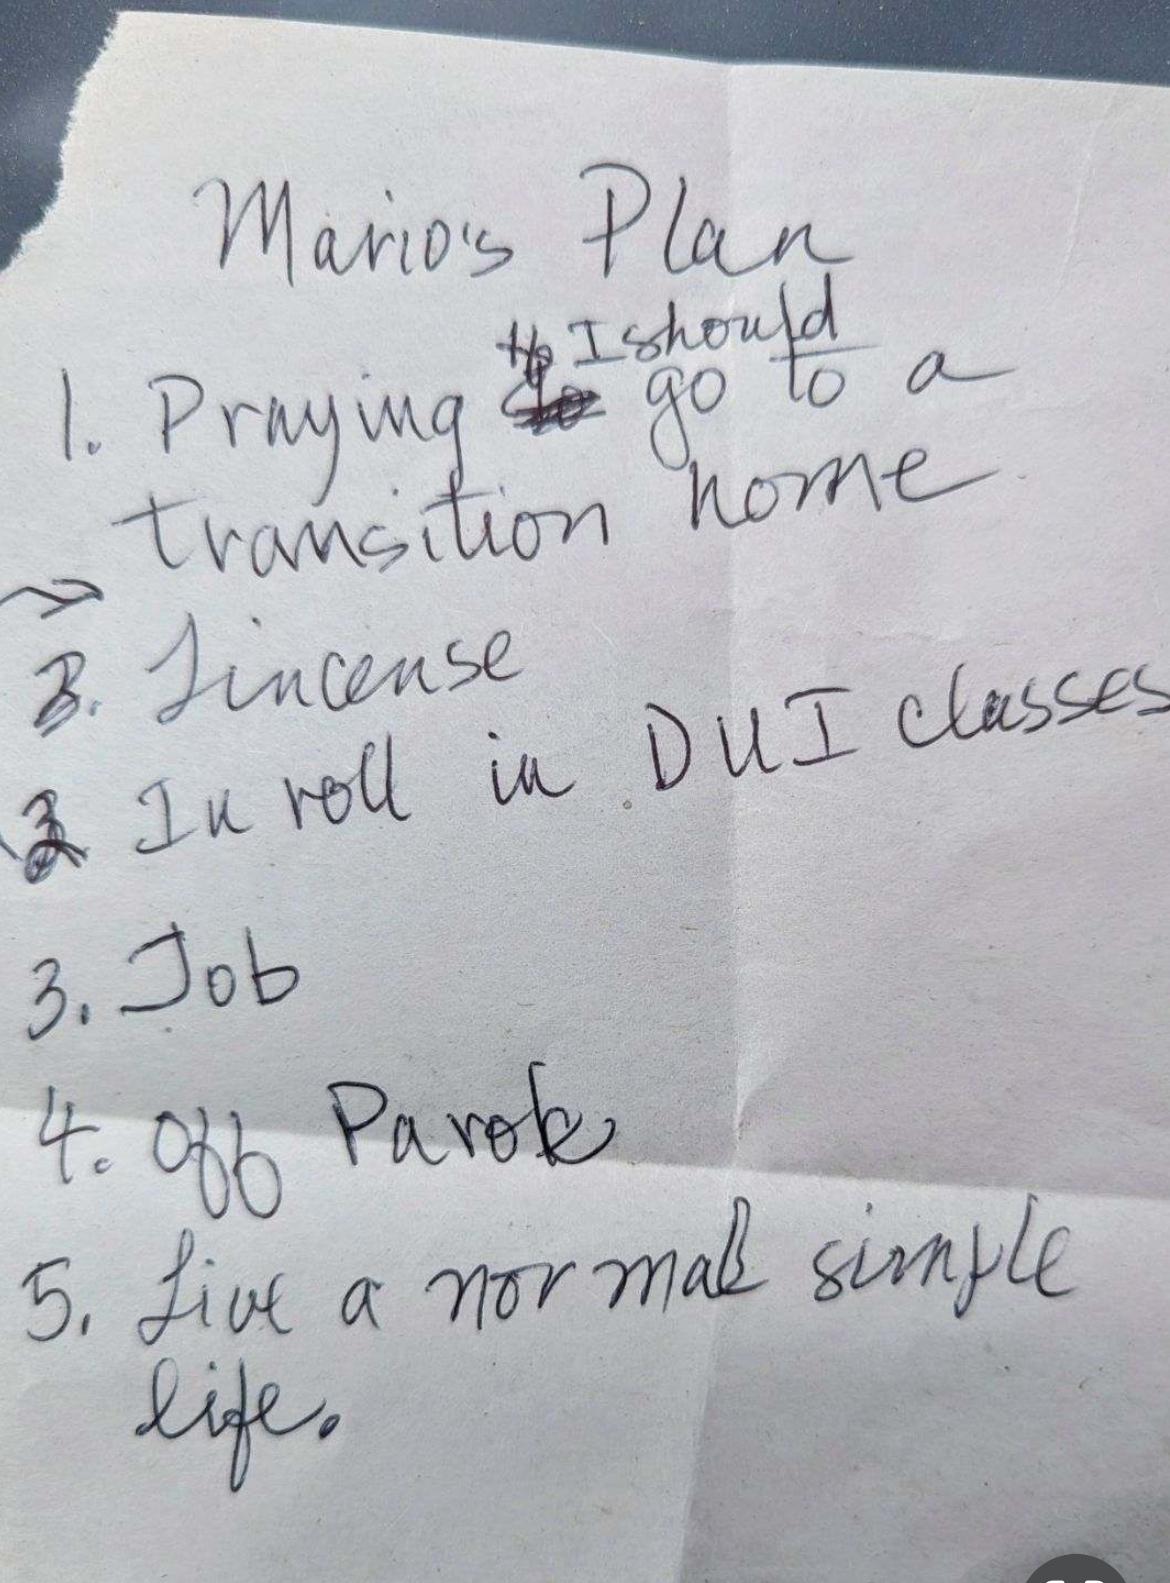 Mario's Plan
I should
1. Praying go to a
transition home
3. Lincense
2 In roll in DUI classes
3. Job
4. Off Parole
5. Live a normal simple
life.